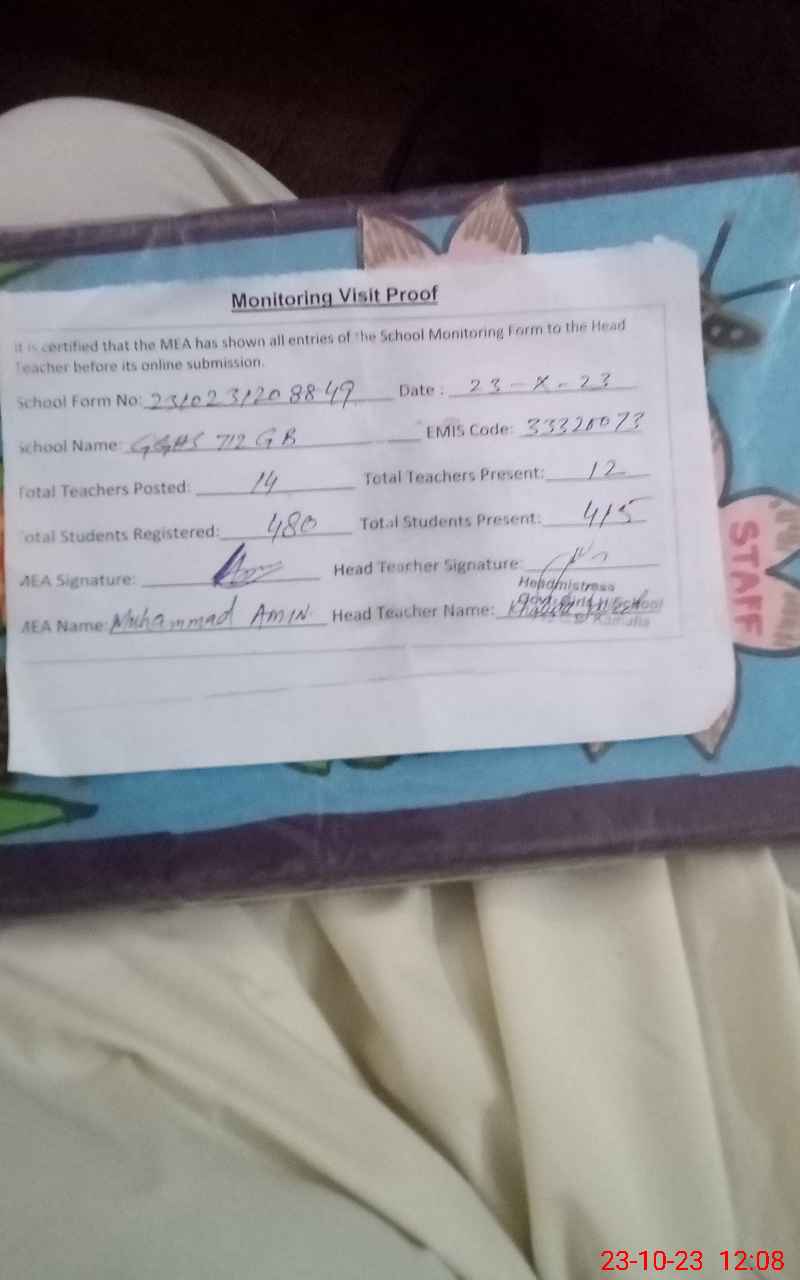 Monitoring Visit Proof
It is certified that the MEA has shown all entries of the School Monitoring Form to the Head
Teacher before its online submission.
School Form No: 2310231208849 Date : 23-X-23
School Name: GGHS 712 GB EMIS Code: 33320073
Total Teachers Posted: 14 Total Teachers Present: 12
Total Students Registered: 480 Total Students Present: 415
MEA Signature: Head Teacher Signature:
Headmistress
MEA Name: Muhammad AMIN Head Teacher Name:
Govt. Girls H/School
Kamalia
STAFF
23-10-23 12:08